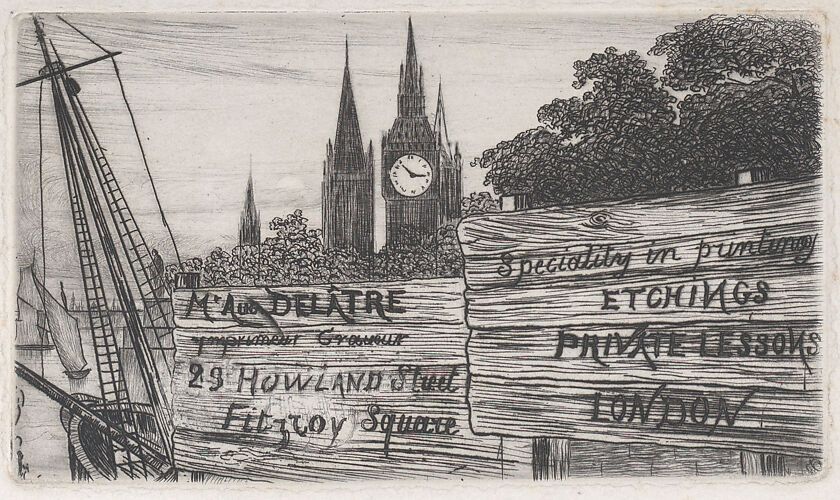 Mr Aug DELÂTRE
imprimeur Graveur
29 HOWLAND Street
Fitzroy Square
Speciality in printing
ETCHINGS
PRIVATE LESSONS
LONDON